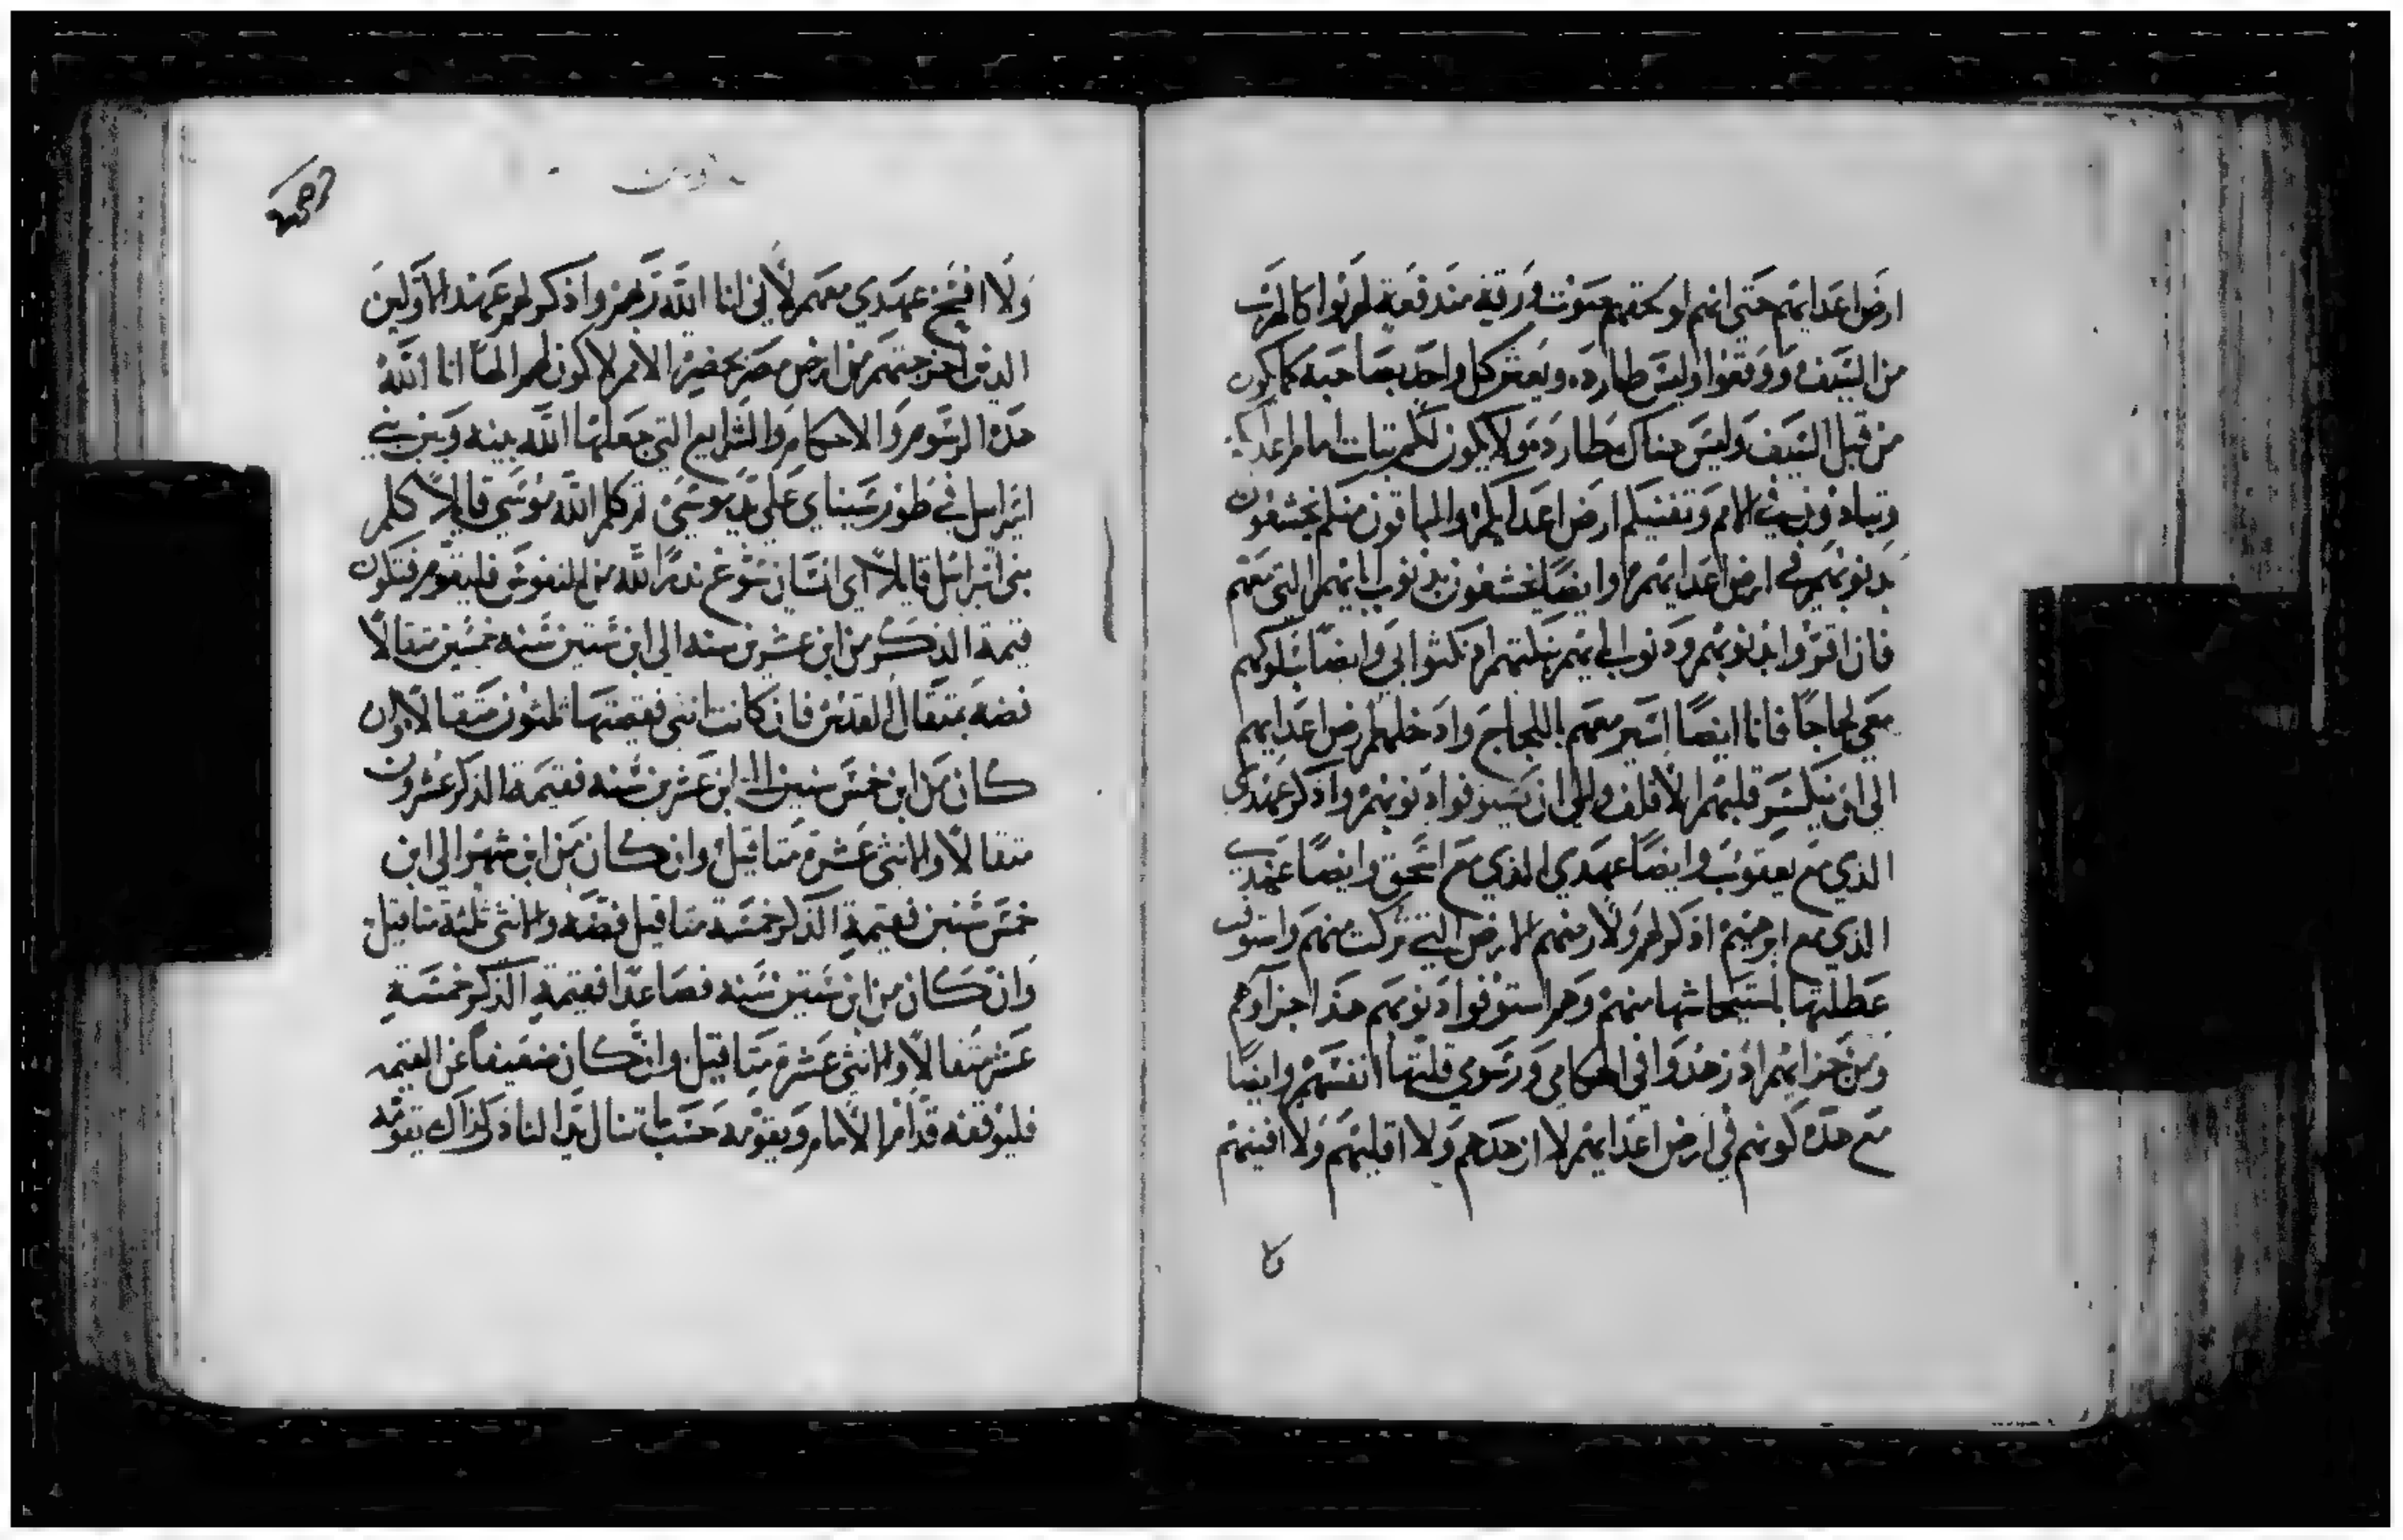 ارض اعدايهم حتى انهم لو لحقهم صوت ورقه مندفعة لهربوا كالهرب
من السيف ووقعوا وليس طارده ويعثر كل واحد بصاحبه كما يكون
من قبل السيف وليس هناك طارده ولا يكون لكم ثبات امام اعدايكم
وتبادون في الامم وتفنيكم ارض اعدايكم والباقون منكم يخشعون
بذنوبهم في ارض اعدايهم وايضا يخشعون بذنوب ابايهم التي معهم
فان اقروا بذنوبهم وذنوب ابايهم اذ نكثوا بي وايضا سلوكهم
معي لجاجا فانا ايضا اسير معهم باللجاج وادخلهم ارض اعدايهم
الى ان ينكسر قلبهم الاقلف والى ان يستوفوا ذنوبهم واذكر عهدي
الذي مع يعقوب وايضا عهدي الذي مع اسحق وايضا عهدي
الذي مع ابرهيم اذكر لهم ولارضهم الارض التي تركت منهم واستوفت
عطلتها باستيحاشها منهم وهم استوفوا ذنوبهم هذا جزاوهم
ومن جزايهم اذ زهدوا في احكامي ورسومي قلتها انفسهم وايضا
مع هذه كونهم في ارض اعدايهم لا ازهدهم ولا اقليهم ولا افنيهم
ولا
ولا افسخ عهدي معهم لاني انا الله ربهم واذكر لهم عهد الاولين
الذين اخرجتهم من ارض مصر بحضرة الامم لاكون لهم الها انا الله
هذه الرسوم والاحكام والشرايع التي جعلها الله بينه وبين بني
اسرايل في طور سيناي على يد موسى ثم كلم الله موسى قايلا كلم
بني اسرايل قايلا اي انسان سوغ نذرا لله من النفوس فليقوم فتكون
قيمة الذكر من ابن عشرين سنه الى ابن ستين سنه خمسين مثقالا
فضه بمثقال القدس فان كانت انثى فقيمتها ثلثون مثقالا وان
كان من ابن خمس سنين الى ابن عشرين سنه فقيمة الذكر عشرون
مثقالا والانثى عشرة مثاقيل وان كان من ابن شهر الى ابن
خمس سنين فقيمة الذكر خمسة مثاقيل فضه والانثى ثلثة مثاقيل
وان كان من ابن ستين سنه فصاعدا فقيمة الذكر خمسة
عشر مثقالا والانثى عشرة مثاقيل وان كان ضعيفا عن القيمه
فليوقفه قدام الامام ويقومه حسب ما تنال يد الناذر كذاك يقومه